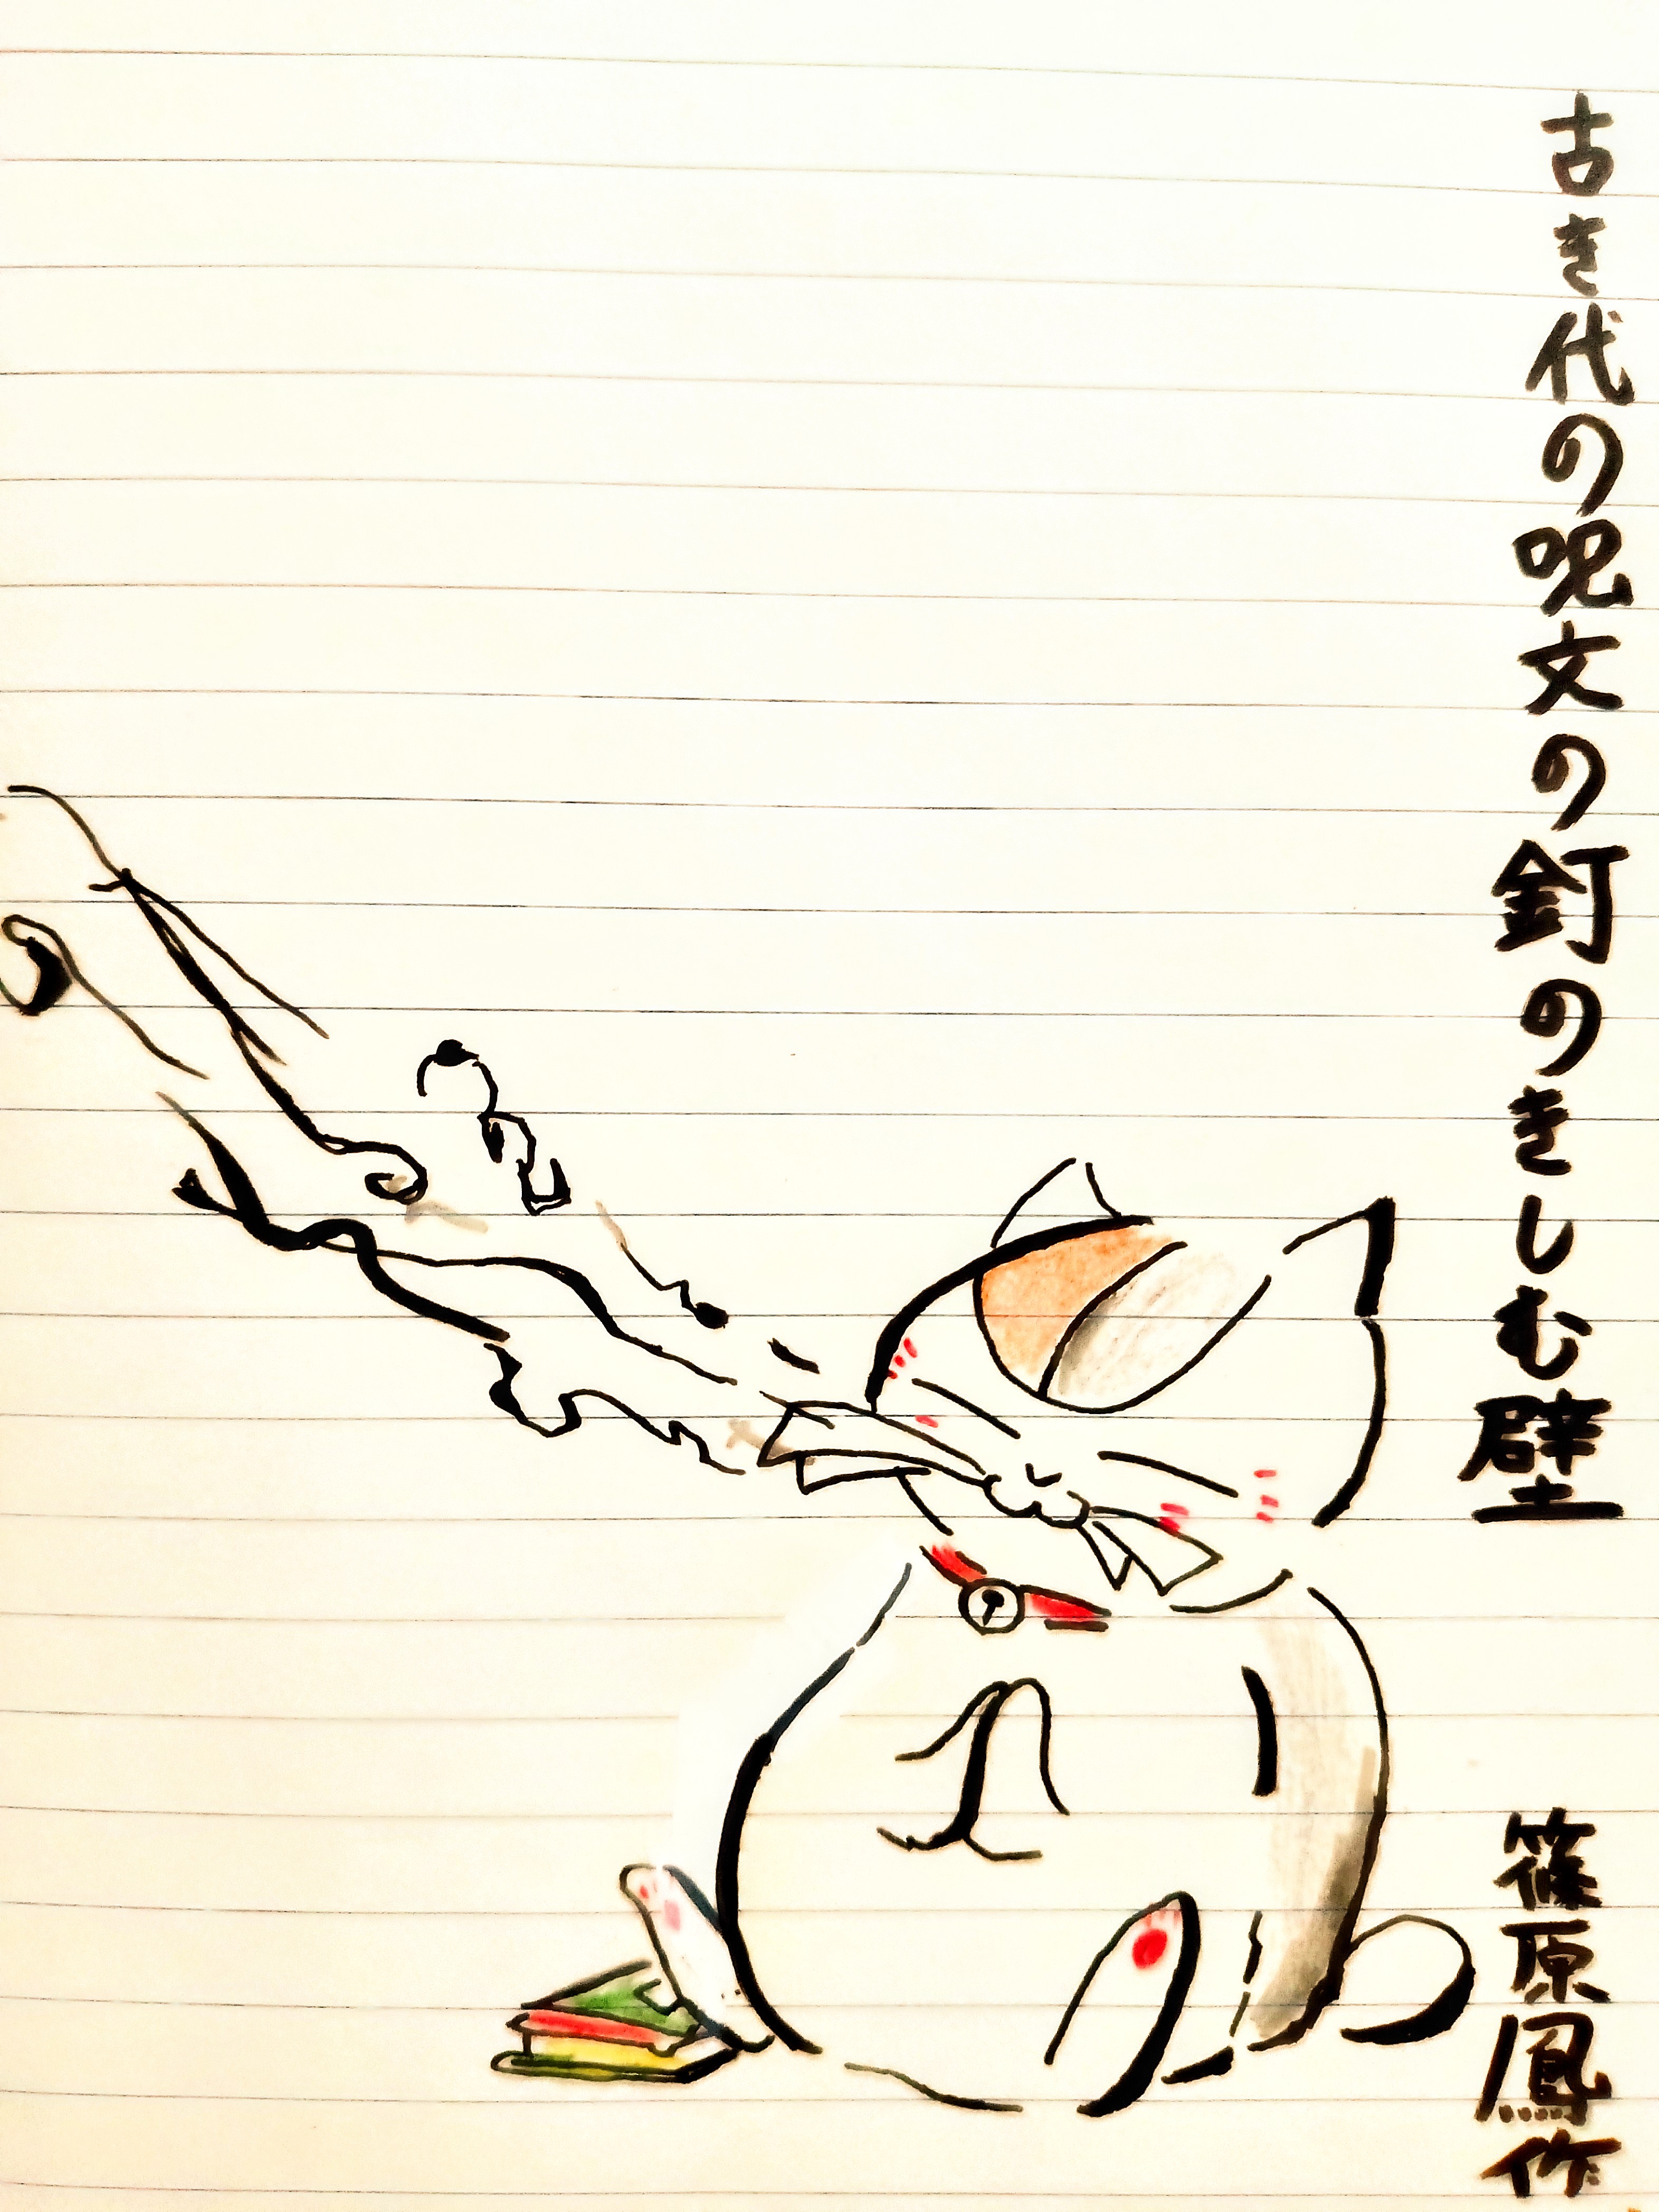 古き代の呪文の釘のきしむ壁
篠原鳳作